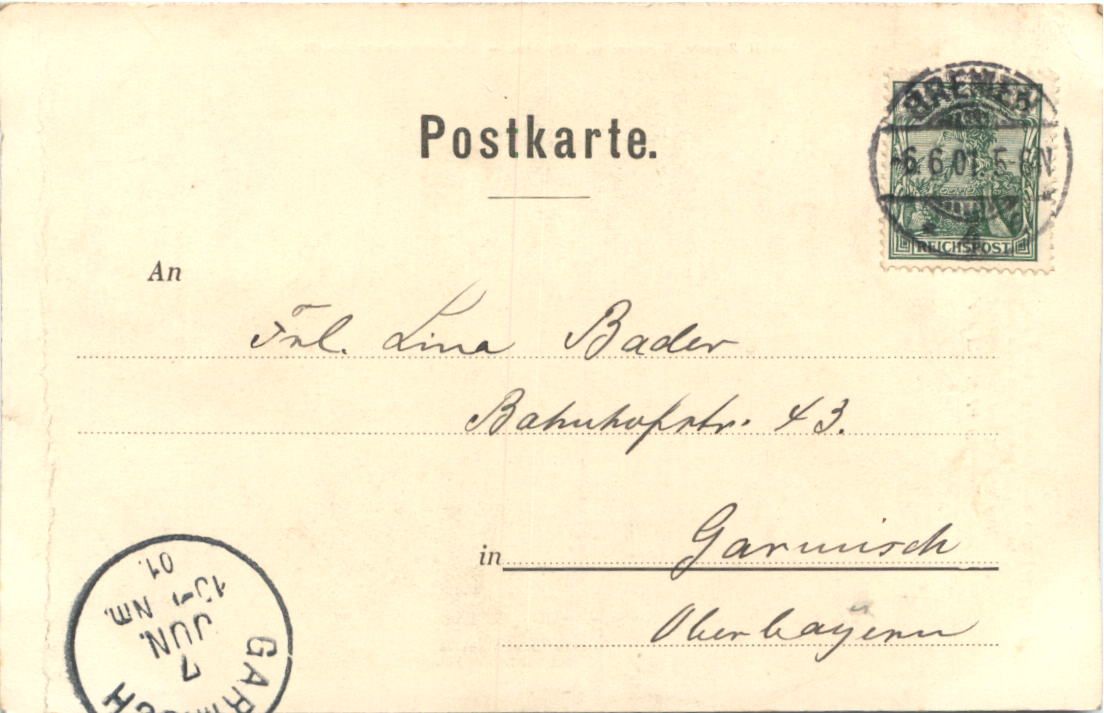 Postkarte.
BREMEN
*6.6.01.5-6N
REICHSPOST
An
Frl. Lina Bader
Bahnhofstr. 43.
in Garmisch
Oberbayern
GARMISCH
7
JUN.
Nm.
01.